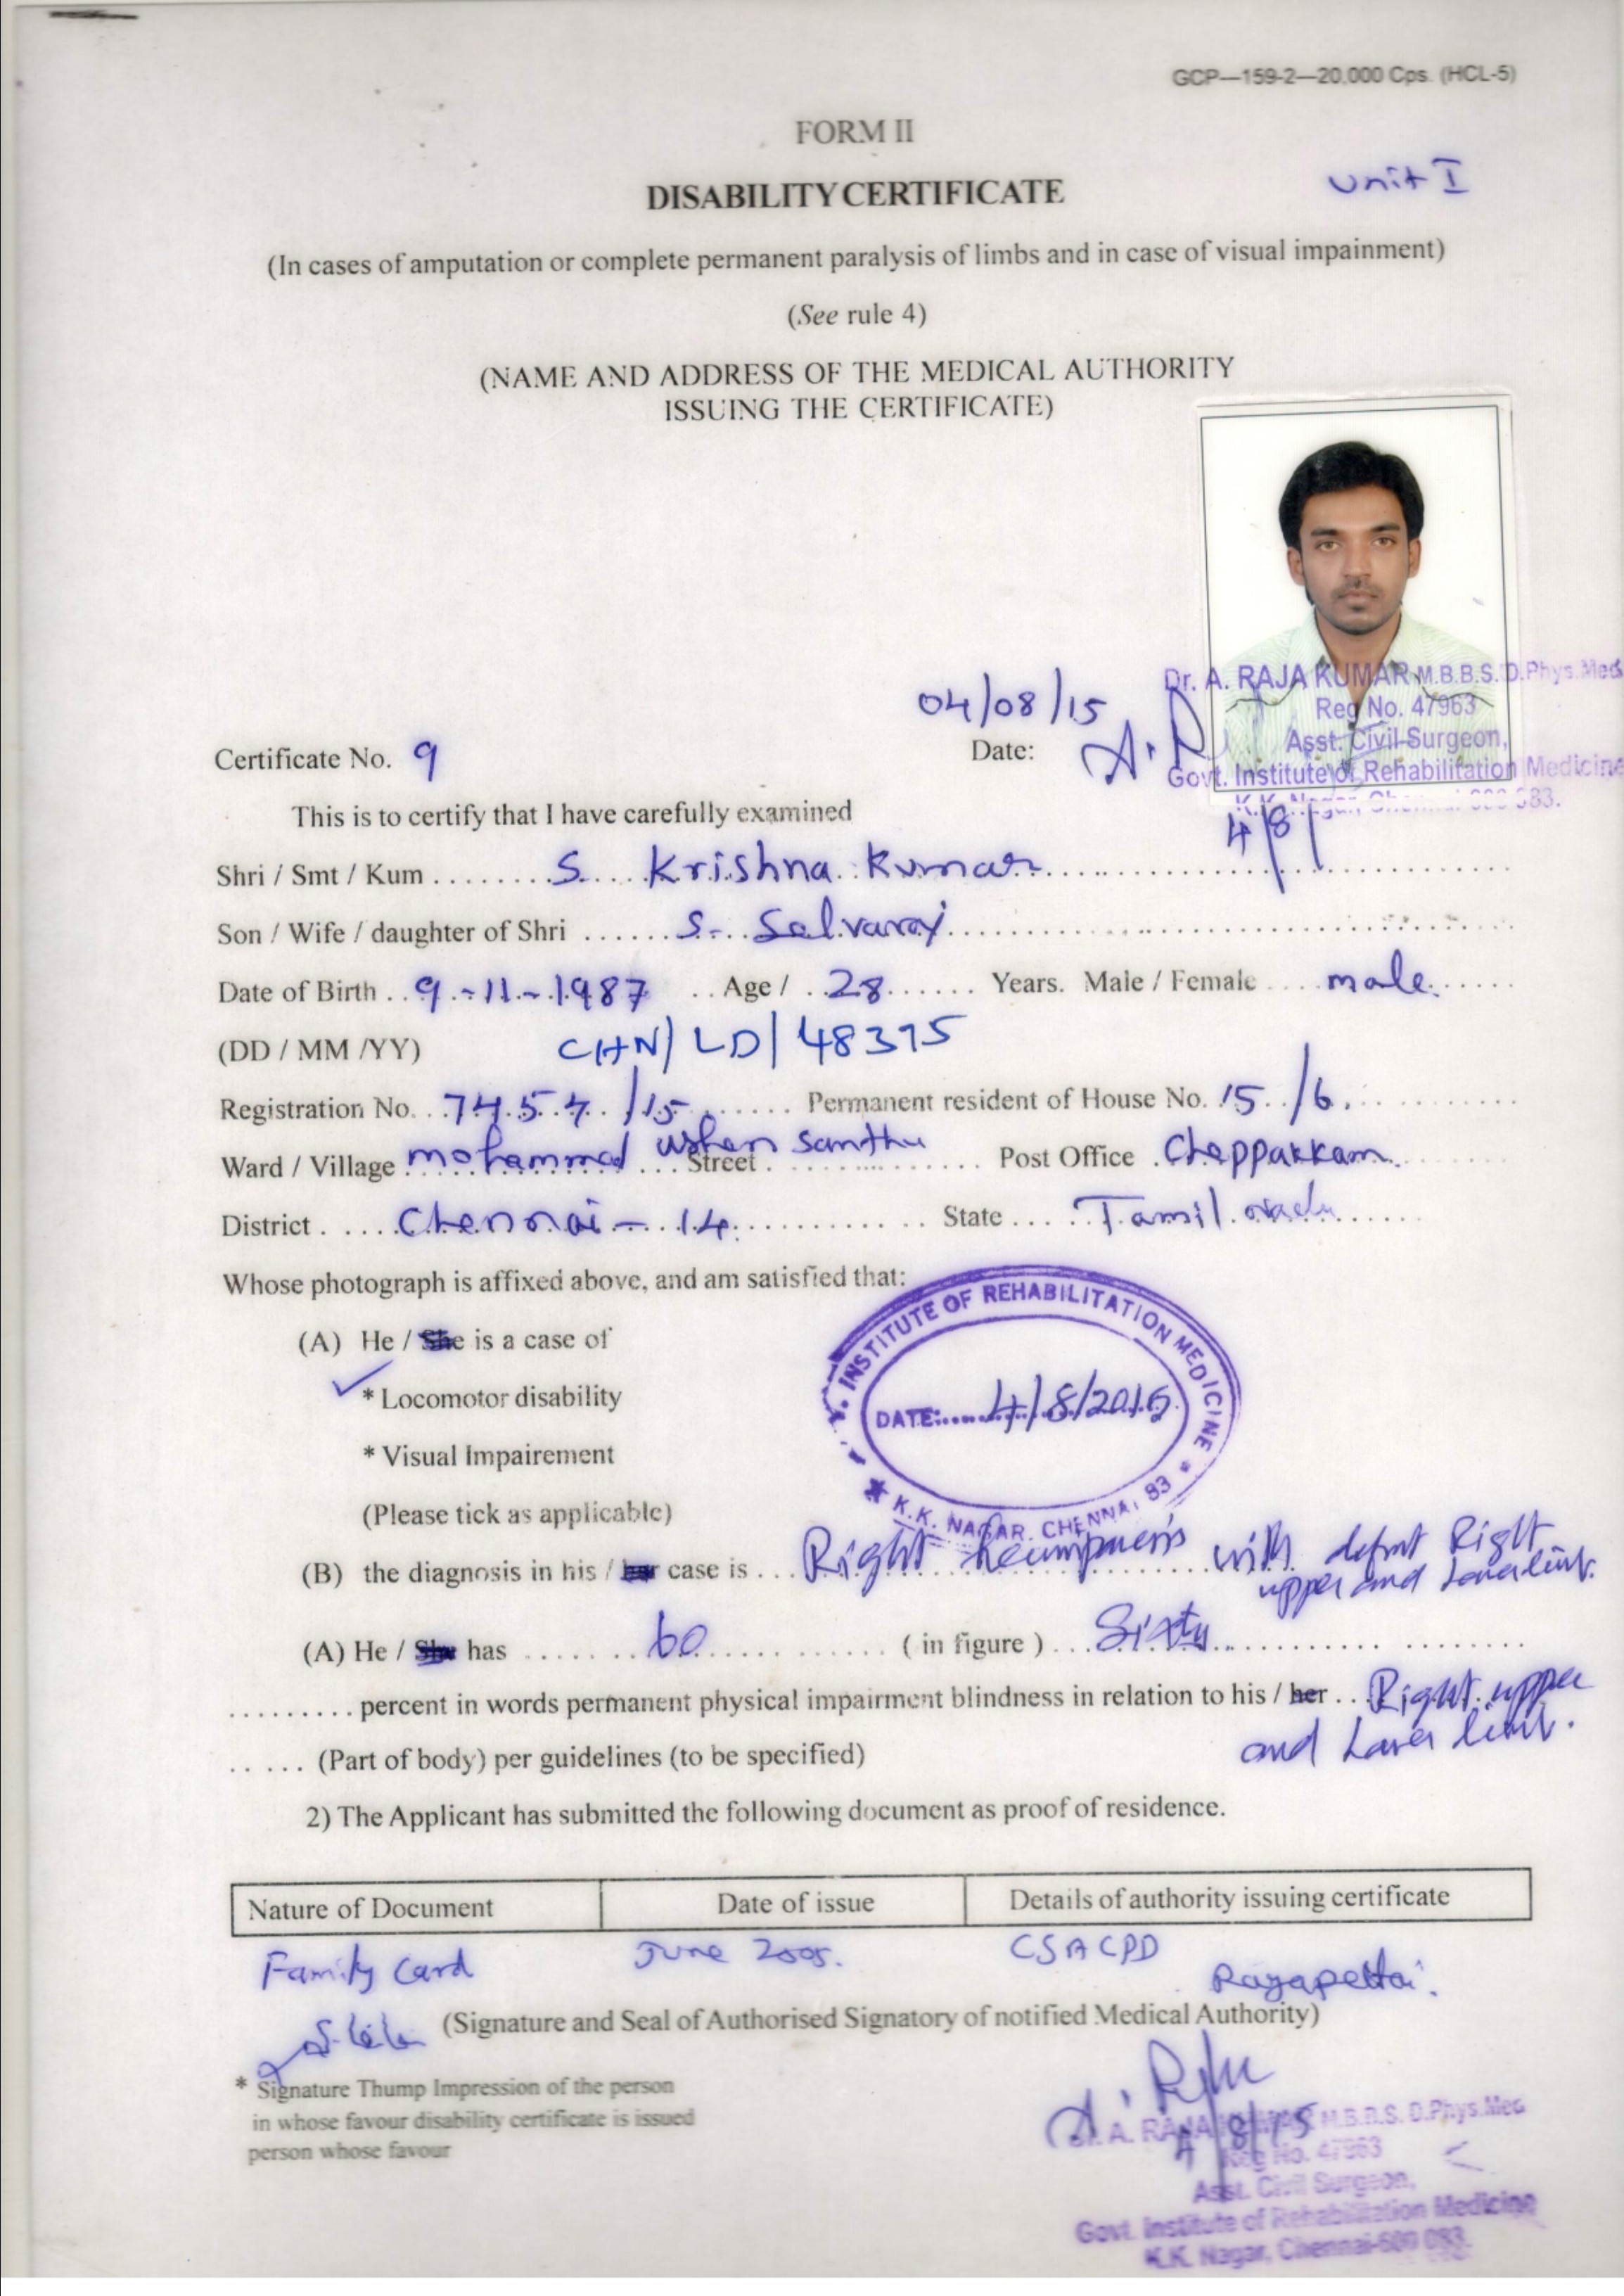 GCP—159-2—20,000 Cps. (HCL-5)
FORM II
DISABILITY CERTIFICATE
Unit I
(In cases of amputation or complete permanent paralysis of limbs and in case of visual impainment)
(See rule 4)
(NAME AND ADDRESS OF THE MEDICAL AUTHORITY
ISSUING THE CERTIFICATE)
Dr. A. RAJA KUMAR M.B.B.S. D.Phys.Med
Reg No. 47963
Asst. Civil Surgeon,
Govt. Institute of Rehabilitation Medicine
K.K. Nagar, Chennai-600 083.
4/8/
Certificate No. 9 Date: 04/08/15
This is to certify that I have carefully examined
Shri / Smt / Kum ........ S. Krishna Kumar ........
Son / Wife / daughter of Shri ...... S. Selvaraj ........
Date of Birth .. 9-11-1987 .. Age / .. 28 ...... Years. Male / Female .... male.
(DD / MM /YY) CHN/LD/48375
Registration No. .. /15 ...... Permanent resident of House No. 15 /6.
Ward / Village mohammed Street Post Office . Cheppakkam
District ..... Chennai - 14. .......... State .... Tamil nadu
Whose photograph is affixed above, and am satisfied that:
(A) He / She is a case of
* Locomotor disability
* Visual Impairement
(Please tick as applicable)
INSTITUTE OF REHABILITATION MEDICINE
DATE: 4/8/2015
* K.K. NAGAR. CHENNAI 83 *
(B) the diagnosis in his / her case is ... Right with Right
upper and Lower limb.
(A) He / She has ........ 60 ........ ( in figure ) ... Sixty ........
......... percent in words permanent physical impairment blindness in relation to his / her .. Right upper
and Lower limb.
..... (Part of body) per guidelines (to be specified)
2) The Applicant has submitted the following document as proof of residence.
Nature of Document Date of issue Details of authority issuing certificate
Family Card June 2005. CSACPD
Rayapettai.
(Signature and Seal of Authorised Signatory of notified Medical Authority)
* Signature Thump Impression of the person
in whose favour disability certificate is issued
person whose favour
4/8/15
Dr. A. RAJA KUMAR M.B.B.S. D.Phys.Med
Reg No. 47963
Asst. Civil Surgeon,
Govt. Institute of Rehabilitation Medicine
K.K. Nagar, Chennai-600 083.